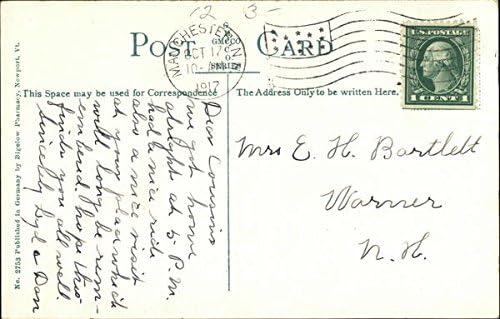 2 3-
POST CARD
GMCCO
SERIES
MANCHESTER N.H.
OCT 17
10-AM
1917
U.S. POSTAGE
1 CENT 1
This Space may be used for Correspondence
The Address Only to be written Here.
No. 2753 Published in Germany by Bigelow Pharmacy, Newport, Vt.
Dear Cousins
we got home
alright at 5 P.M.
had a nice ride
also a nice visit
at your place which
will long be rem-
embered. hope this
finds you all well
Sincerely Lyd & Dan
Mrs E. H. Bartlett
Warner
N. H.